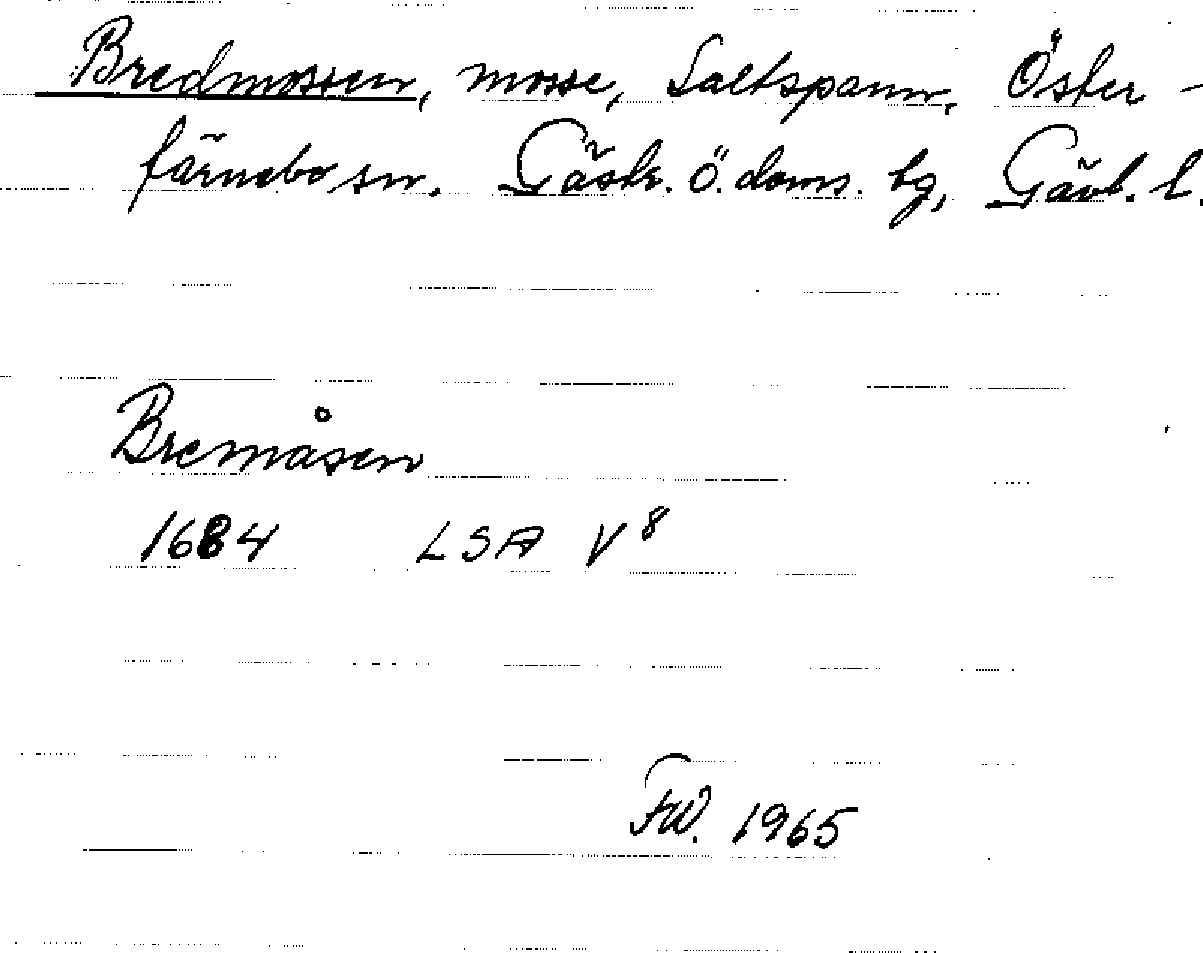 Bredmossen, mosse, Saltspann, Öster-
färnebo sn. Gästr. ö. doms. tg, Gävl. l.
Bremåsen
1684 LSA V8
FW. 1965